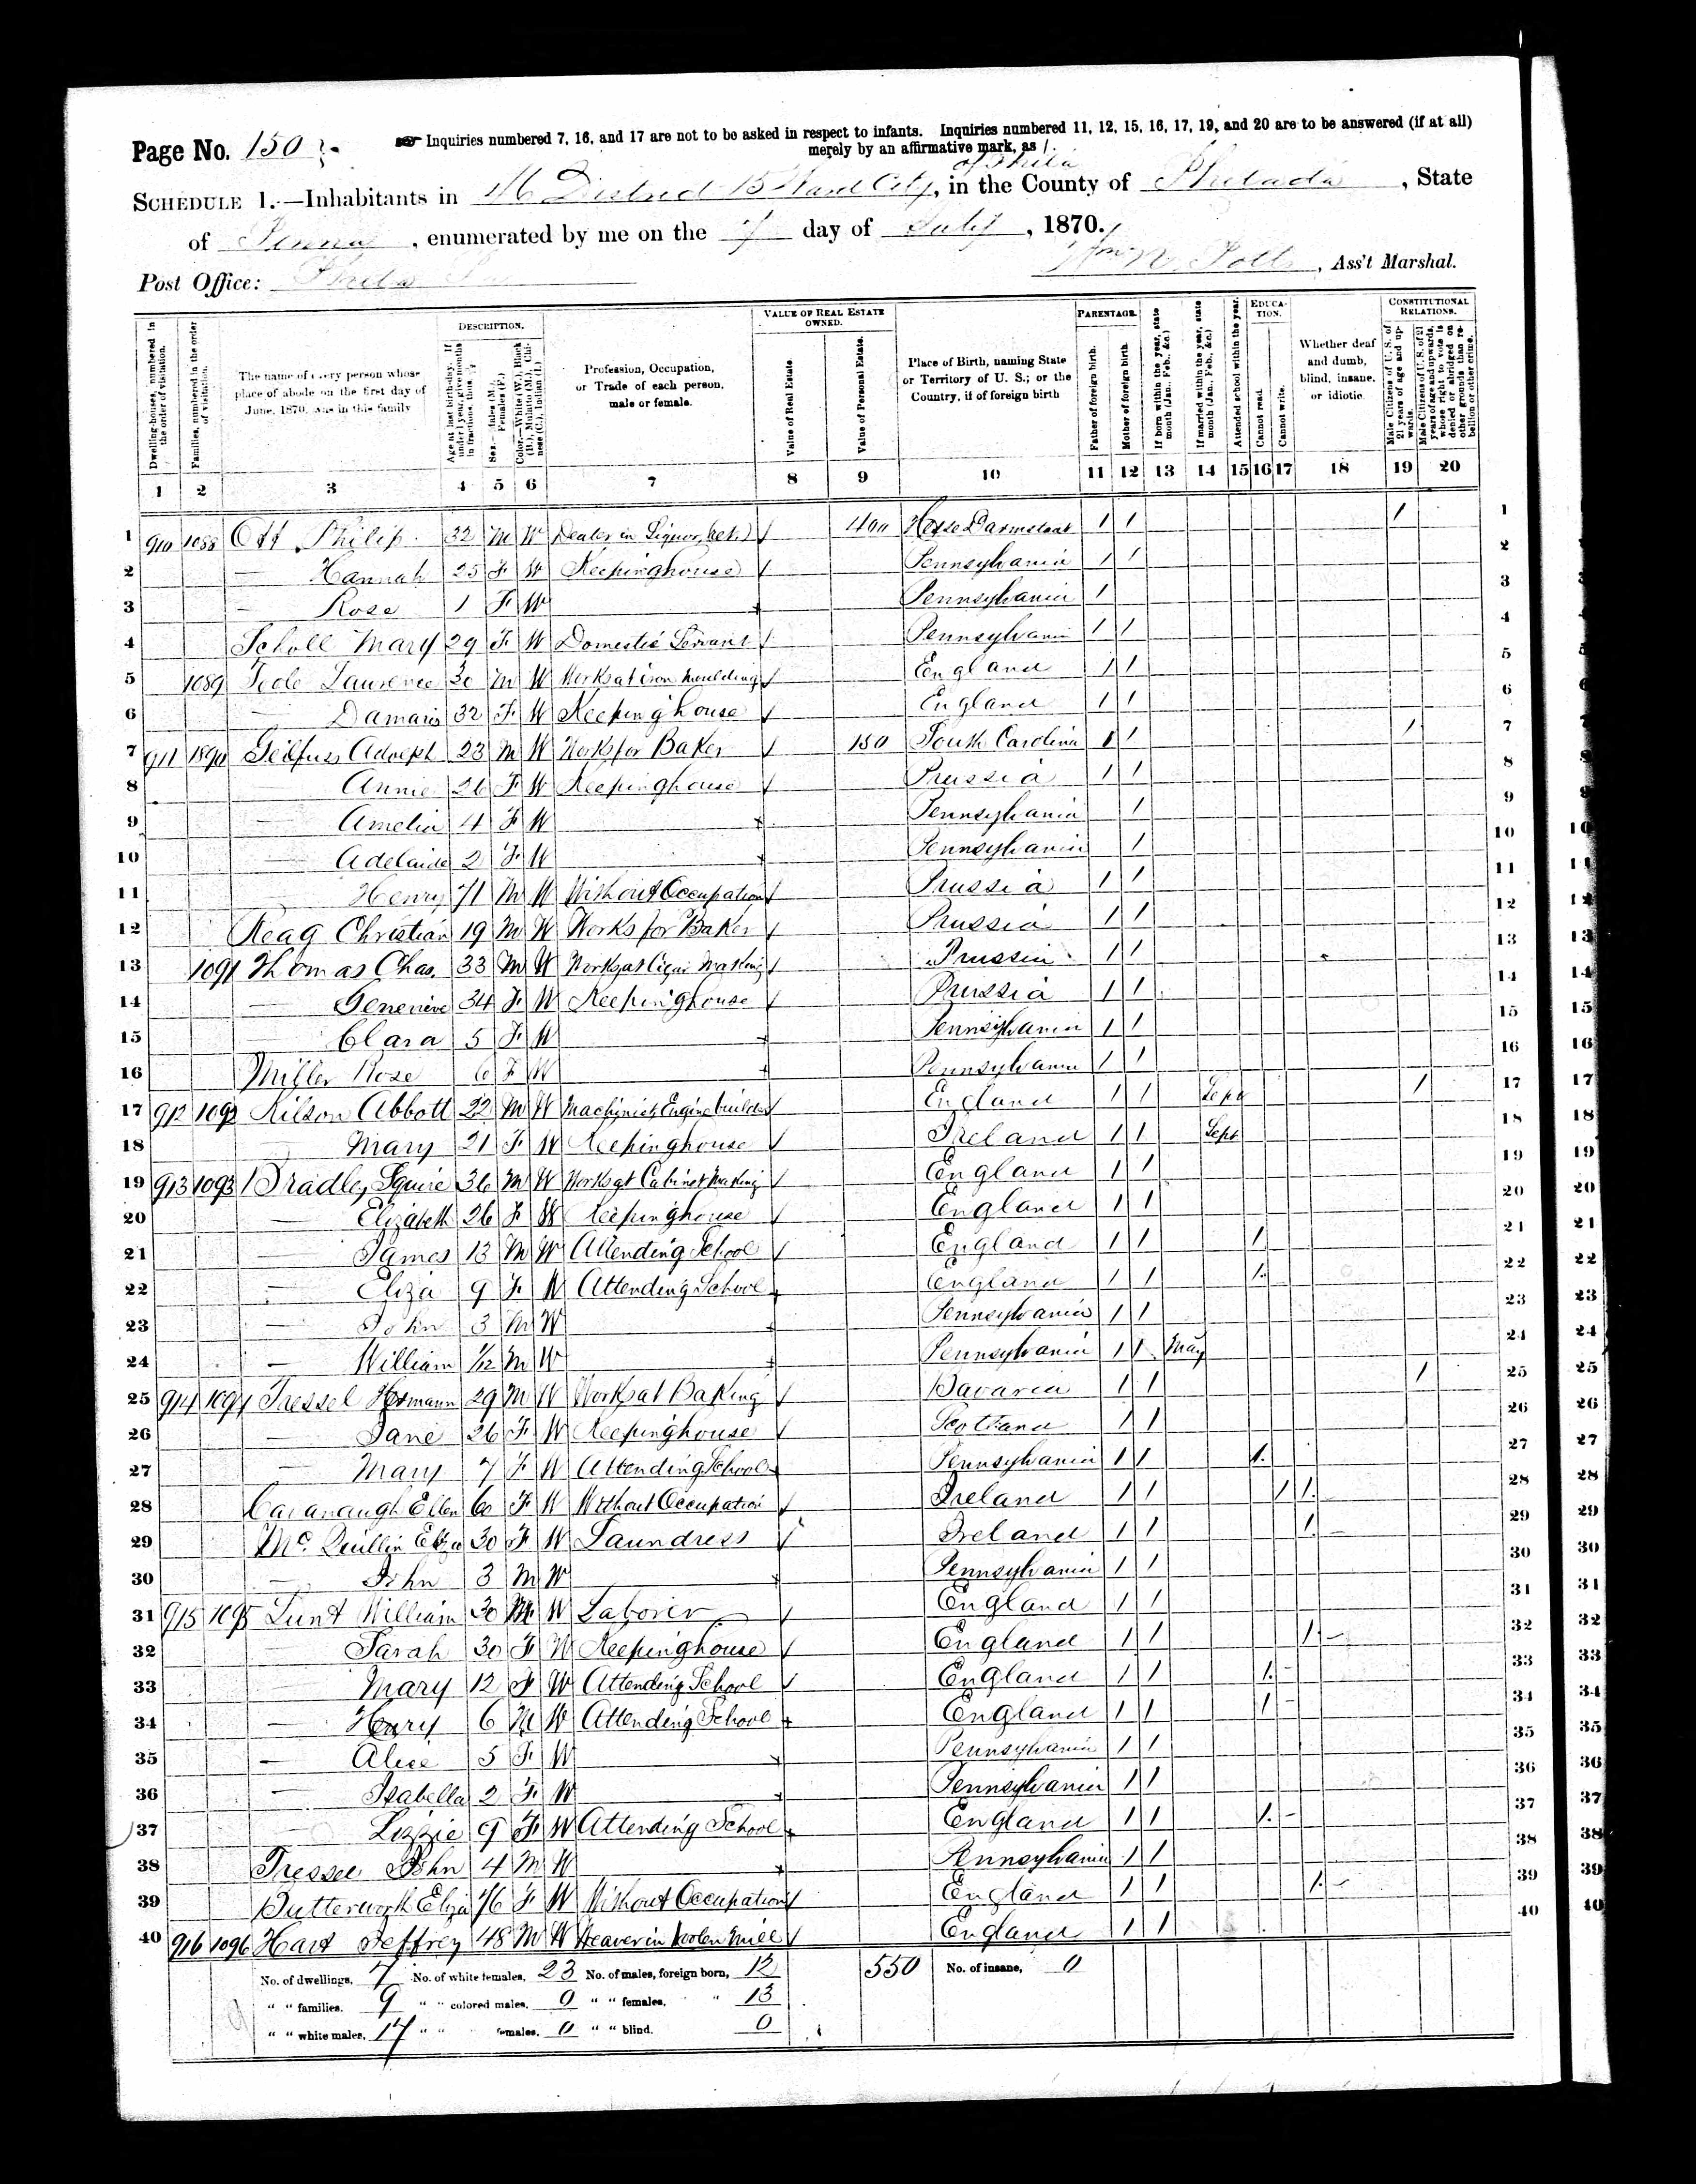 Page No. 150
Inquiries numbered 7, 16, and 17 are not to be asked in respect to infants. Inquiries numbered 11, 12, 15, 16, 17, 19, and 20 are to be answered (if at all)
merely by an affirmative mark, as /.
of Phila
SCHEDULE 1.—Inhabitants in District 15 Ward City, in the County of Philada, State
of Penna, enumerated by me on the 7 day of July, 1870.
Post Office: Phila
Wm N. Potts, Ass't Marshal.
Dwelling-houses, numbered in the order of visitation.
Families, numbered in the order of visitation.
The name of every person whose place of abode on the first day of June, 1870, was in this family
DESCRIPTION.
Age at last birth-day. If under 1 year, give months in fractions, thus,
Sex.—Males (M.), Females (F.)
Color.—White (W.), Black (B.), Mulatto (M.), Chinese (C.), Indian (I.)
Profession, Occupation, or Trade of each person, male or female.
VALUE OF REAL ESTATE OWNED.
Value of Real Estate.
Value of Personal Estate.
Place of Birth, naming State or Territory of U. S.; or the Country, if of foreign birth
PARENTAGE.
Father of foreign birth.
Mother of foreign birth.
If born within the year, state month (Jan., Feb., &c.)
If married within the year, state month (Jan., Feb., &c.)
Attended school within the year.
EDUCATION.
Cannot read.
Cannot write.
Whether deaf and dumb, blind, insane, or idiotic.
CONSTITUTIONAL RELATIONS.
Male Citizens of U. S. of 21 years of age and upwards.
Male Citizens of U. S. of 21 years of age and upwards, whose right to vote is denied or abridged on other grounds than rebellion or other crime.
1 2 3 4 5 6 7 8 9 10 11 12 13 14 15 16 17 18 19 20
1 910 1088 Ott Philip 32 M W Dealer in Liquor, ret. 400 Hesse Darmstadt / / / 1
2 — Hannah 25 F W Keepinghouse Pennsylvania / / 2
3 — Rose 1 F W Pennsylvania / 3
4 Scholl Mary 29 F W Domestic Servant Pennsylvania / / 4
5 1089 Laurence 30 M W Works at iron moulding England / / 5
6 — Damaris 32 F W Keepinghouse England / / 6
7 911 1890 Geilfuss Adolph 23 M W Works for Baker 150 South Carolina / / / 7
8 Annie 26 F W Keepinghouse Prussia / / 8
9 Amelia 4 F W Pennsylvania / 9
10 Adelaide 2 F W Pennsylvania / 10
11 Henry 71 M W Without Occupation Prussia / / 11
12 Reag Christian 19 M W Works for Baker Prussia / / 12
13 1091 Thomas Chas. 33 M W Works at Cigar Making Prussia / / 13
14 — Genevieve 34 F W Keepinghouse Prussia / / 14
15 — Clara 5 F W Pennsylvania / / 15
16 Miller Rose 6 F W Pennsylvania / / 16
17 912 1092 Kilson Abbott 22 M W Machinist Engine builder England / / Sept / 17
18 — Mary 21 F W Keepinghouse Ireland / / Sept 18
19 913 1093 Bradley Squire 36 M W Works at Cabinet Making England / / 19
20 — Elizabeth 26 F W Keepinghouse England / / 20
21 — James 13 M W Attending School England / / / 21
22 — Eliza 9 F W Attending School England / / / 22
23 — John 3 M W Pennsylvania / / 23
24 — William 1/12 M W Pennsylvania / / May 24
25 914 1094 Tressel Hermann 29 M W Works at Baking Bavaria / / / 25
26 — Jane 26 F W Keepinghouse Scotland / / 26
27 — Mary 7 F W Attending School Pennsylvania / / / 27
28 Cavanaugh Ellen 60 F W Without Occupation Ireland / / / / 28
29 McQuillin Eliza 30 F W Laundress Ireland / / / 29
30 — John 3 M W Pennsylvania / / 30
31 915 1095 Lunt William 30 M W Laborer England / / 31
32 — Sarah 30 F W Keepinghouse England / / / 32
33 — Mary 12 F W Attending School England / / / 33
34 — Henry 6 M W Attending School England / / / 34
35 — Alice 5 F W Pennsylvania / / 35
36 — Isabella 2 F W Pennsylvania / / 36
37 — Lizzie 9 F W Attending School England / / / 37
38 Tressel John 4 M W Pennsylvania / / 38
39 Butterworth Eliza 76 F W Without Occupation England / / / 39
40 916 1096 Hart Jeffrey 48 M W Weaver in Woolen Mill England / / 40
No. of dwellings, 7 No. of white females, 23 No. of males, foreign born, 12 550 No. of insane, 0
" " families. 9 " " colored males, 0 " " females, " 13
" " white males, 17 " " females, 0 " " blind. 0